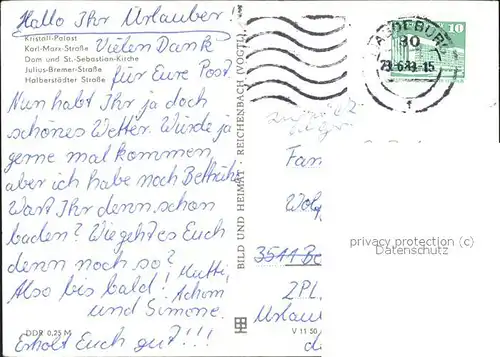 Hallo Ihr Urlauber!
Kristall-Palast
Karl-Marx-Straße
Dom und St.-Sebastian-Kirche
Julius-Bremer-Straße
Halberstädter Straße
Vielen Dank
für Eure Post.
Nun habt Ihr ja doch
schönes Wetter. Würde ja
gerne mal kommen
aber ich habe noch Bettruhe
Wart Ihr denn schon
baden? Wie geht es Euch
denn noch so?
Also bis bald! Mutti,
Achim
und Simone.
Erholt Euch gut!!!
DDR 0,25 M
BILD UND HEIMAT REICHENBACH (VOGTL)
V 11 50
MAGDEBURG
30
10
zurück
Fam
3511 Be
ZPL
Urlau
d
privacy protection (c)
Datenschutz